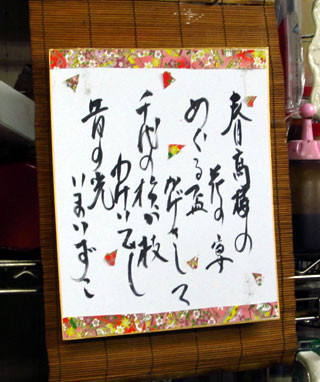 春高楼の
花の宴
めぐる盃
かげさして
千代の松が枝
わけいでし
昔の光
いまいずこ